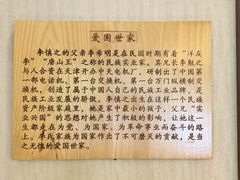 爱国世家
李慎之的父亲李希明是在民国时期有着“洋灰
李”“唐山王”之称的民族实业家。其兄李勉之
与人合资在天津开办中天电机厂，研制出了中国第
一部电话交换机，创办了第一个纵横制
交换机，创造了上百个民族工业品牌，是
民族工业发展的脊梁。李慎之出生在这样一个民族
资产阶级家庭里，她是家中最小的孩子，父兄“实
业兴国”的思想对她产生了积极的影响，让她这一
生都走在为党、为国家、为革命事业而奋斗的路
上。李氏家族为国家作出了不可磨灭的贡献，是当
之无愧的爱国世家。